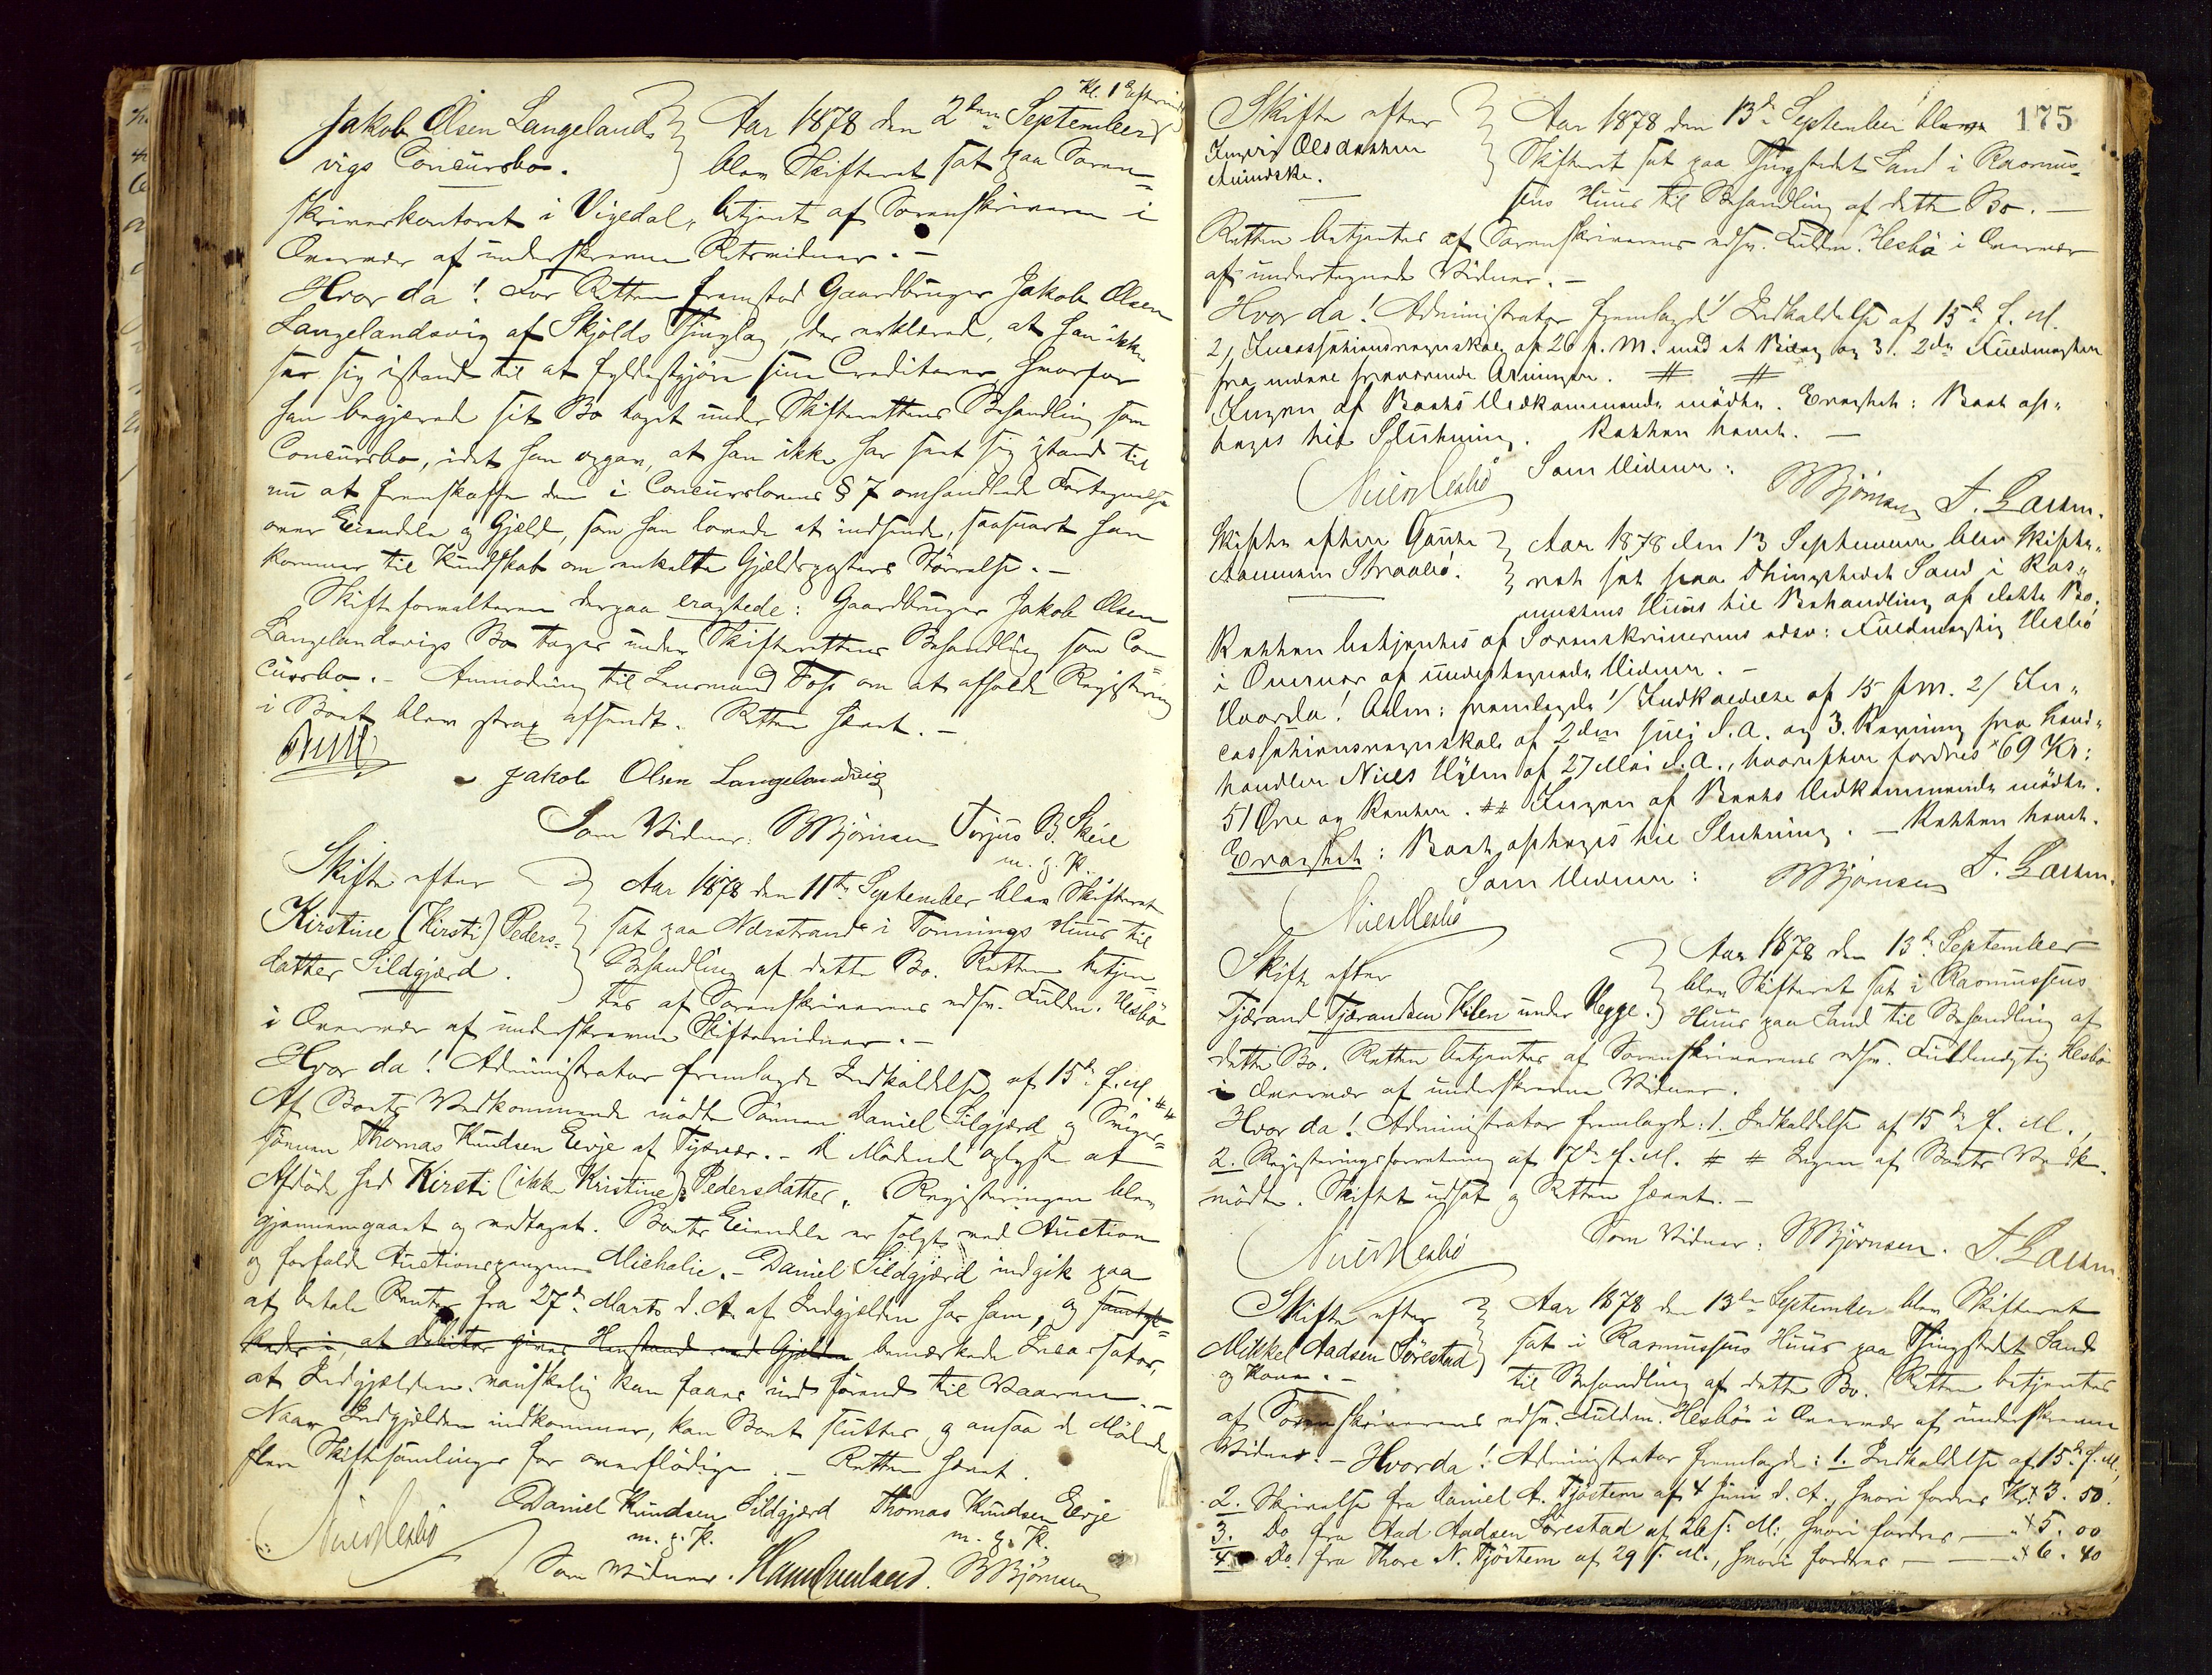 Kl. 1 Efterm.
Jakob Olsen Langelands Aar 1878 den 2den September
vigs Concursbo. blev Skifteret sat paa Soren-
skriverkontoret i Vigedal, betjent af Sorenskriveren i
Overvær af underskrevne Retsvidner. –
Hvor da! For Retten fremstod Gaardbruger Jakob Olsen
Langelandsvig af Skjolds Thinglag, der erklærede, at han ikke
ser sig istand til at fyldestgjøre sine Creditorer hvorfor
han begjærede sit Bo taget under Skifterettens Behandling som
Concursbo, idet han opgav, at han ikke har seet sig istand til
nu at fremskaffe den i Concurslovens § 7 omhandlede Fortegnelse
over Eiendele og Gjæld, som han lovede at indsende, saasnart han
kommer til Kundskab om enkelte Gjældsposters Størrelse. –
Skifteforvalteren derpaa eragtede: Gaardbruger Jakob Olsen
Langelandsvigs Bo tages under Skifterettens Behandling som Con
cursbo. – Anmodning til Lensmand Foss om at afholde Registrering
i Boet blev strax afsendt. Retten hævet. –
Jakob Olsen Langelandsvig
Som Vidner: BBjørnsen Torjus B. Skeie
m. p. P.
Skifte efter Aar 1878 den 11te September blev Skifteret
Kirstine (Kirsti) Peders- sat paa Nærstrand i Tonnings Huus til
datter Sildgjærd. Behandling af dette Bo. Retten betjen
tes af Sorenskriverens edsv. Fuldm. Hesbö
i Overvær af underskrevne Skiftevidner. –
Hvor da! Administrator fremlagde Indkaldelse af 15de f. M. ##
Af Boets Vedkommende mødte Sönnen Daniel Silgjærd og Sviger-
sönnen Thomas Knudsen Eevje af Tysvær. – De Mödende oplyste at
Afdöde hed Kirsti (ikke Kristine) Pedersdatter. Registreringen blev
gjennemgaaet og vedtaget. Boets Eiendele er solgt ved Auction
og forfaldt Auctionspengene Michalie. – Daniel Sildgjærd indgik paa
at betale Renter fra 27de Marts d. A. af Indgjælden hos ham, og samtyk-
kede i, at Debitor gives Henstand med Gjælden bemærkede Incassator,
at Indgjælden vanskelig kan faaes ind förend til Vaaren. –
Naar Indgjælden indkommer, kan Boet sluttes og ansaa de Mödende
flere Skiftesamlinger for overflödige. – Retten hævet.
Daniel Knudsen Sildgjærd Thomas Knudsen Eevje
m. p. P. m. p. P.
Niels Hesbö
Som Vidner. BBjørnsen
175
Skifte efter Aar 1878 den 13de September blev
Olsdatter Skifteret sat paa Thingstedet Sand i Rasmus-
sens Huus til Behandling af dette Bo. –
Retten betjentes af Sorenskriverens edsv. Fuldm. Hesbö i Overvær
af undertegnede Vidner. –
Hvor da! Administrator fremlagde 1/ Indkaldelse af 15de f. M.
2, Incassationsregnskab af 26 f. M. med et Bilag og 3. 2de Fuldmagter
fra endeel fraværende Arvinger. # #
Ingen af Boets Vedkommende mödte. Eragtet: Boet op-
tages til Slutning. Retten hævet. –
Niels Hesbö Som Vidner: BBjörnsen T. Larsen.
Skifte efter Gaute Aar 1878 den 13 September blev Skifte-
Aamunds Straabö. ret sat paa Thingstedet Sand i Ras-
mussens Huus til Behandling af dette Bo.
Retten betjentes af Sorenskriverens edsv: Fuldmægtig Hesbö
i Overvær af undertegnede Vidner. –
Hvorda! Adm: fremlagde 1/ Indkaldelse af 15 f. m. 2/ In-
cassationsregnskab af 2den Juli d. A. og 3. Regning fra Land-
handler Niels Hylen af 27 Mai d. A., hvorefter fordres 69 Kr:
51 Öre og Renter. ## Ingen af Boets Vedkommende mödte.
Eragtet: Boet optages til Slutning. – Retten hævet.
Som Vidner: BBjörnsen T. Larsen.
Niels Hesbö
Skifte efter Aar 1878 den 13de September
blev Skifteret sat i Rasmussens
Tjærand Tjærandsen Kilen under Hegge. Huus paa Sand til Behandling af
dette Bo. Retten betjentes af Sorenskriverens edsv. Fuldmægtig Hesbö
i Overvær af underskrevne Vidner.
Hvor da! Administrator fremlagde: 1. Indkaldelse af 15de f. M.,
2. Registreringsforretning af 7de f. M. # # Ingen af Boets Vedk.
mödte. Skiftet udsat og Retten hævet. –
Niels Hesbö Som Vidner: BBjørnsen. T. Larsen.
Skifte efter Aar 1878 den 13de September blev Skifteret
Mikkel Aadsen Sörestad sat i Rasmussens Huus paa Thingstedet Sand
og Kone. – til Behandling af dette Bo. Retten betjentes
af Sorenskriverens edsv. Fuldm. Hesbö i Overvær af underskrevne
Vidner. – Hvorda! Administrator fremlagde: 1. Indkaldelse af 15de f. M.,
2. Skrivelse fra Daniel A. Tjöstem af 4 Juni d. A., hvori fordres Kr. 3. 50.
3. Do fra Aad Aadsen Sörestad af 26 f. M., hvori fordres – " 5. 00
4 Do fra Thore N. Tjöstem af 29 f. M., hvori fordres – – " 6. 40